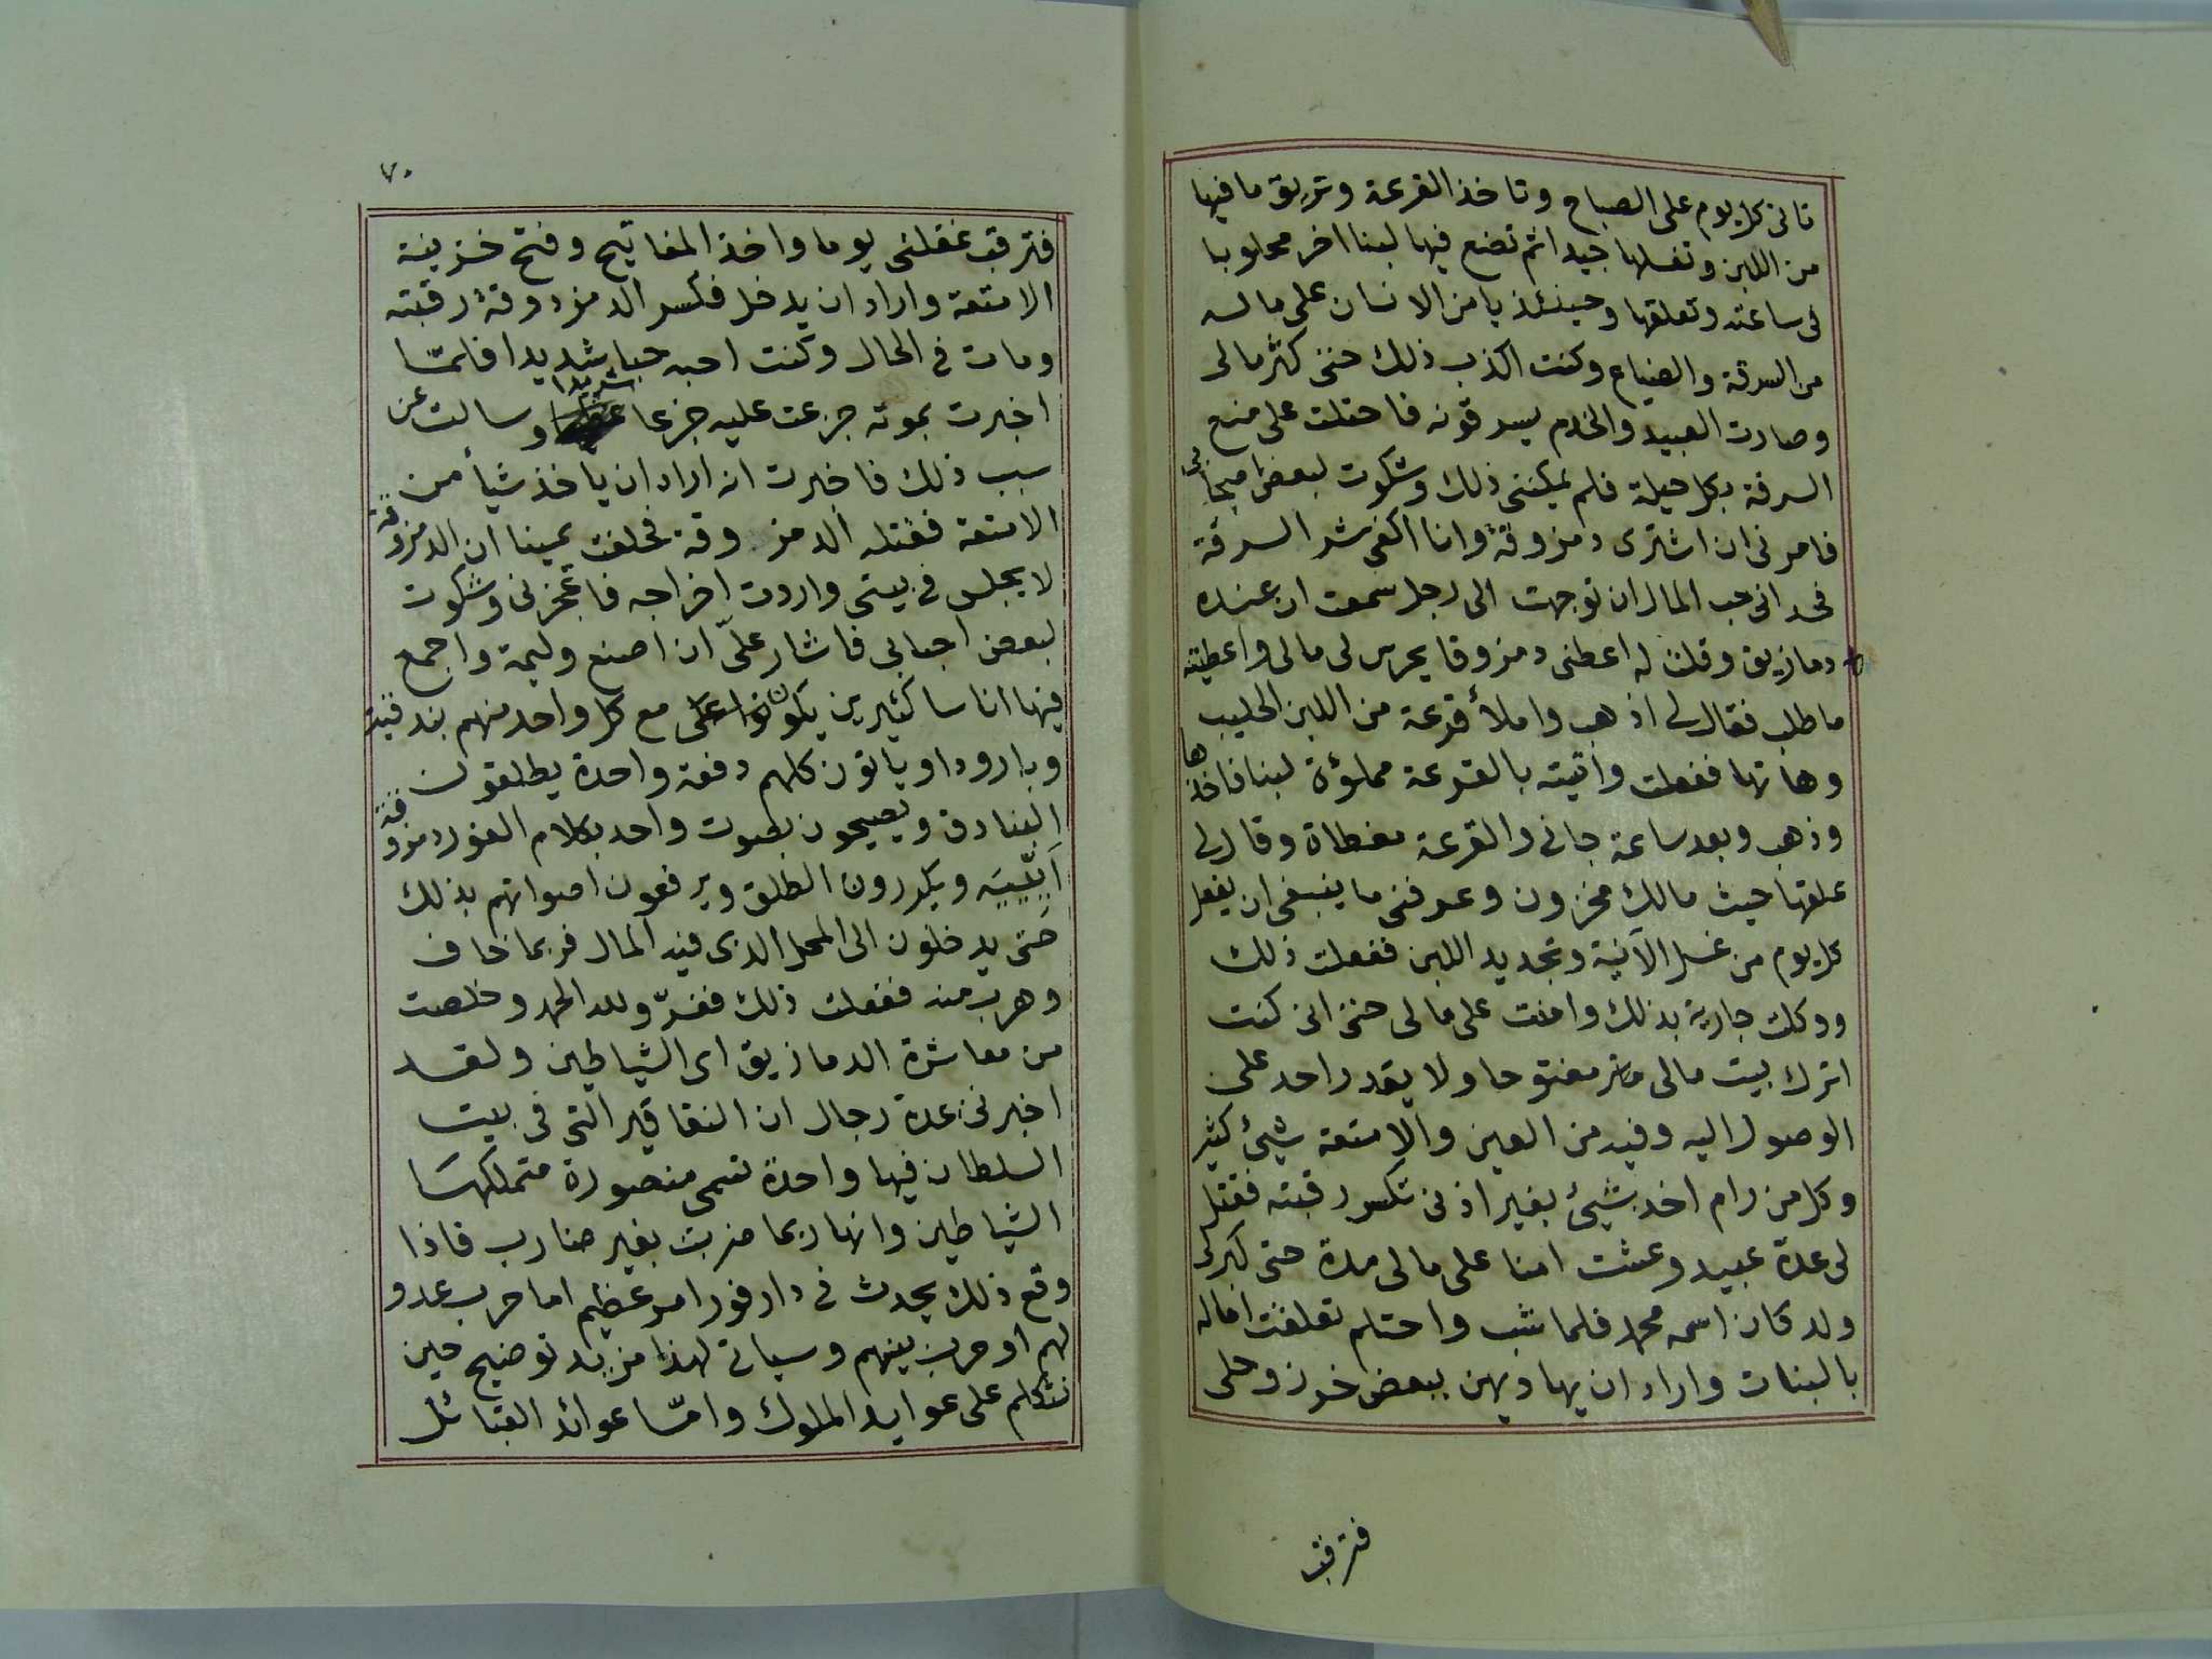 تاتى كل يوم على الصباح وتاخذ القرعة وتريق ما فيها
من اللبن وتغسلها جيدا ثم تضع فيها لبنا اخر محلوبا
فى ساعته وتعلقها وحينئذ يامن الانسان على ماله
من السرقة والضياع وكنت اكذب ذلك حتى كثر مالى
وصارت العبيد والخدم يسرقونه فاحتلت على منع
السرقة بكل حيلة فلم يمكننى ذلك وشكوت لبعض اصحابى
فامرنى ان اشترى دمزوقة وانا اكفى شر السرقة
فحدانى حب المال ان توجهت الى رجل سمعت ان عنده
دمازيق وقلت له اعطنى دمزوقا يحرس لى مالى واعطيته
ما طلب فقال لى اذهب واملأ قرعة من اللبن الحليب
وهاتها ففعلت واتيته بالقرعة مملوءة لبنا فاخذها
وذهب وبعد ساعة جانى والقرعة مغطاة وقال لى
علقها حيث مالك مخزون وعرفنى ما ينبغى ان يفعل
كل يوم من غسل الآنية وتجديد اللبن ففعلت ذلك
ووكلت جارية بذلك وامنت على مالى حتى انى كنت
اترك بيت مالى مفتوحا ولا يقدر احد على
الوصول اليه وفيه من العين والامتعة شيئ كثير
وكل من رام اخذ شيئ بغير اذنى تكسر رقبته فقتل
لى عدة عبيد وعشت امنا على مالى مدة حتى كبر لى
ولد كان اسمه محمد فلما شب واحتلم تعلقت اماله
بالبنات واراد ان يهاديهن ببعض خرز وحلى
فترقب
٧٠
فترقب غفلتى يوما واخذ المفاتيح وفتح خزينة
الامتعة واراد ان يدخل فكسر الدمزوقة رقبته
ومات فى الحال وكنت احبه حبا شديدا فلمّا
اخبرت بموته جزعت عليه جزعا شديدا وسالت عن
سبب ذلك فاخبرت انه اراد ان ياخذ شيأ من
الامتعة فقتله الدمزوقة فحلفت يمينا ان الدمزوقة
لا يجلس فى بيتى واردت اخراجه فاعجزنى وشكوت
لبعض احبابى فاشار علىّ ان اصنع وليمة واجمع
فيها اناسا كثيرين يكون مع كل واحد منهم بندقية
وبارودا وياتون كلهم دفعة واحدة يطلقون
البنادق ويصيحون بصوت واحد بكلام الفور دمزوقة
اَيِيِّيَه ويكررون الطلق ويرفعون اصواتهم بذلك
حتى يدخلون الى المحل الذى فيه المال فربما خاف
وهرب منه ففعلت ذلك ففرّ ولله الحمد وخلصت
من معاشرة الدمازيق اى الشياطين ولقد
اخبرنى عدة رجال ان النقاقير التى فى بيت
السلطان فيها واحدة تسمى منصورة متملكهسا
الشياطين وانها ربما ضربت بغير ضارب فاذا
وقع ذلك يحدث فى دارفور امر عظيم اما حرب عدو
لهم او حرب بينهم وسياتى لهذا مزيد توضيح حين
نتكلم على عوايد الملوك وامّا عوائد القبائل